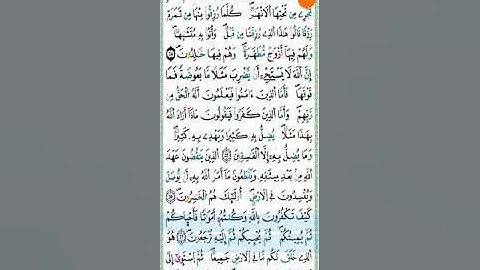 تَجْرِے مِن تَحْتِهَا اَ۬لَانْهَٰرُ كُلَّمَا رُزِقُواْ مِنْهَا مِن ثَمَرَةٖ
رِّزْقاٗ قَالُواْ هَٰذَا اَ۬لذِے رُزِقْنَا مِن قَبْلُ وَأُتُواْ بِهِۦ مُتَشَٰبِهاٗ
وَلَهُمْ فِيهَآ أَزْوَٰجٞ مُّطَهَّرَةٞ وَهُمْ فِيهَا خَٰلِدُونَ
إِنَّ اَ۬للَّهَ لَا يَسْتَحْيِۦٓ أَنْ يَّضْرِبَ مَثَلاٗ مَّا بَعُوضَةٗ فَمَا
فَوْقَهَا فَأَمَّا اَ۬لذِينَ ءَامَنُواْ فَيَعْلَمُونَ أَنَّهُ اُ۬لْحَقُّ مِن
رَّبِّهِمْ وَأَمَّا اَ۬لذِينَ كَفَرُواْ فَيَقُولُونَ مَاذَآ أَرَادَ اَ۬للَّهُ
بِهَٰذَا مَثَلاٗ يُضِلُّ بِهِۦ كَثِيراٗ وَيَهْدِے بِهِۦ كَثِيراٗ
وَمَا يُضِلُّ بِهِۦٓ إِلَّا اَ۬لْفَٰسِقِينَ اَ۬لذِينَ يَنقُضُونَ عَهْدَ
اَ۬للَّهِ مِنۢ بَعْدِ مِيثَٰقِهِۦ وَيَقْطَعُونَ مَآ أَمَرَ اَ۬للَّهُ بِهِۦٓ أَنْ يُّوصَلَ
وَيُفْسِدُونَ فِے اِ۬لَارْضِ أُوْلَٰٓئِكَ هُمُ اُ۬لْخَٰسِرُونَ
كَيْفَ تَكْفُرُونَ بِاللَّهِ وَكُنتُمُۥٓ أَمْوَٰتاٗ فَأَحْيَٰكُمْ
ثُمَّ يُمِيتُكُمْ ثُمَّ يُحْيِيكُمْ ثُمَّ إِلَيْهِ تُرْجَعُونَ هُوَ
اَ۬لذِے خَلَقَ لَكُم مَّا فِے اِ۬لَارْضِ جَمِيعاٗ ثُمَّ اَ۪سْتَو۪ىٰٓ إِلَى